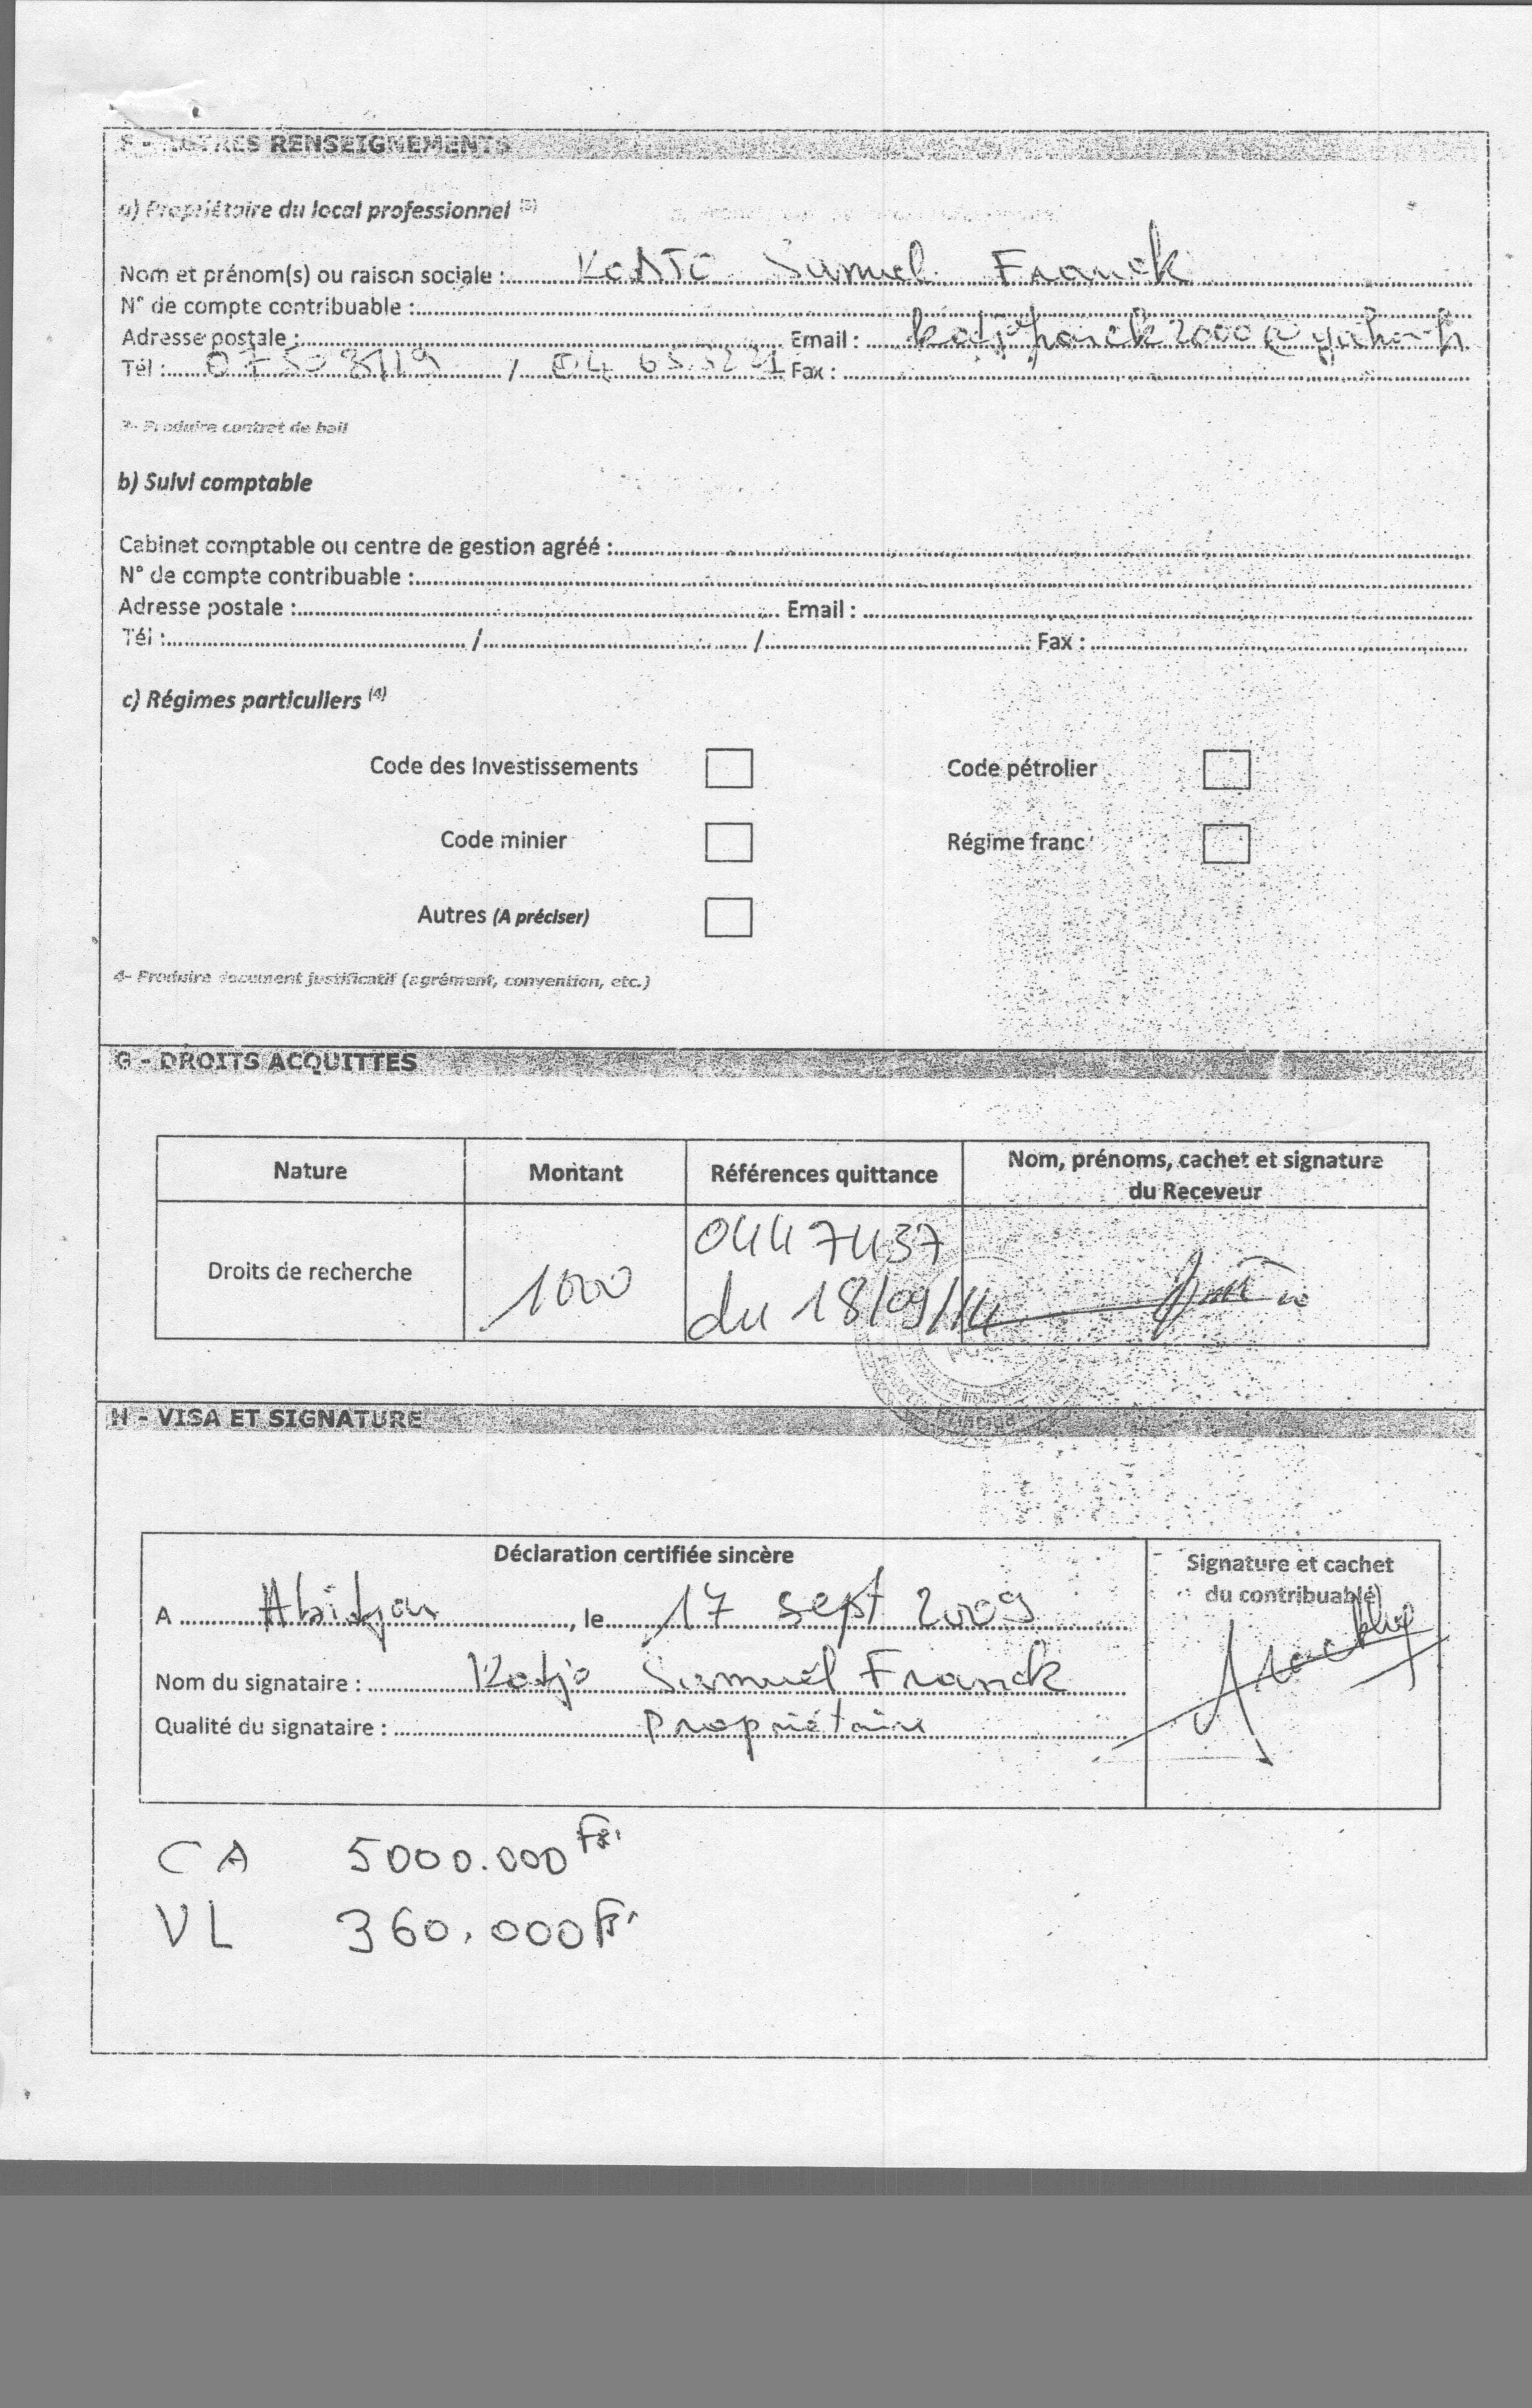 F - AUTRES RENSEIGNEMENTS
a) Propriétaire du local professionnel (3)
Nom et prénom(s) ou raison sociale : KADJO Samuel Franck
N° de compte contribuable :
Adresse postale : Email :
Tél : / 04 Fax :
3- Produire contrat de bail
b) Suivi comptable
Cabinet comptable ou centre de gestion agréé :
N° de compte contribuable :
Adresse postale : Email :
Tél : / / Fax :
c) Régimes particuliers (4)
Code des Investissements Code pétrolier
Code minier Régime franc
Autres (A préciser)
4- Produire document justificatif (agrément, convention, etc.)
G - DROITS ACQUITTES
Nature Montant Références quittance Nom, prénoms, cachet et signature
du Receveur
Droits de recherche 1000 04474437
du 18/09/14
H - VISA ET SIGNATURE
Déclaration certifiée sincère Signature et cachet
du contribuable)
A Abidjan, le 17 sept 2009
Nom du signataire : Kadjo Samuel Franck
Qualité du signataire : Propriétaire
CA 5000.000 Frs
VL 360.000 Frs